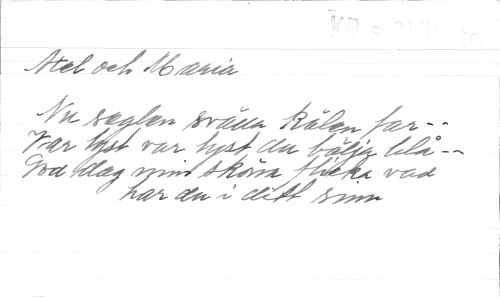 Axel och Maria
Nu seglen svälla kölen far --
Var tyst var tyst du bölja blå --
God dag min sköna flicka vad
har du i ditt sinn